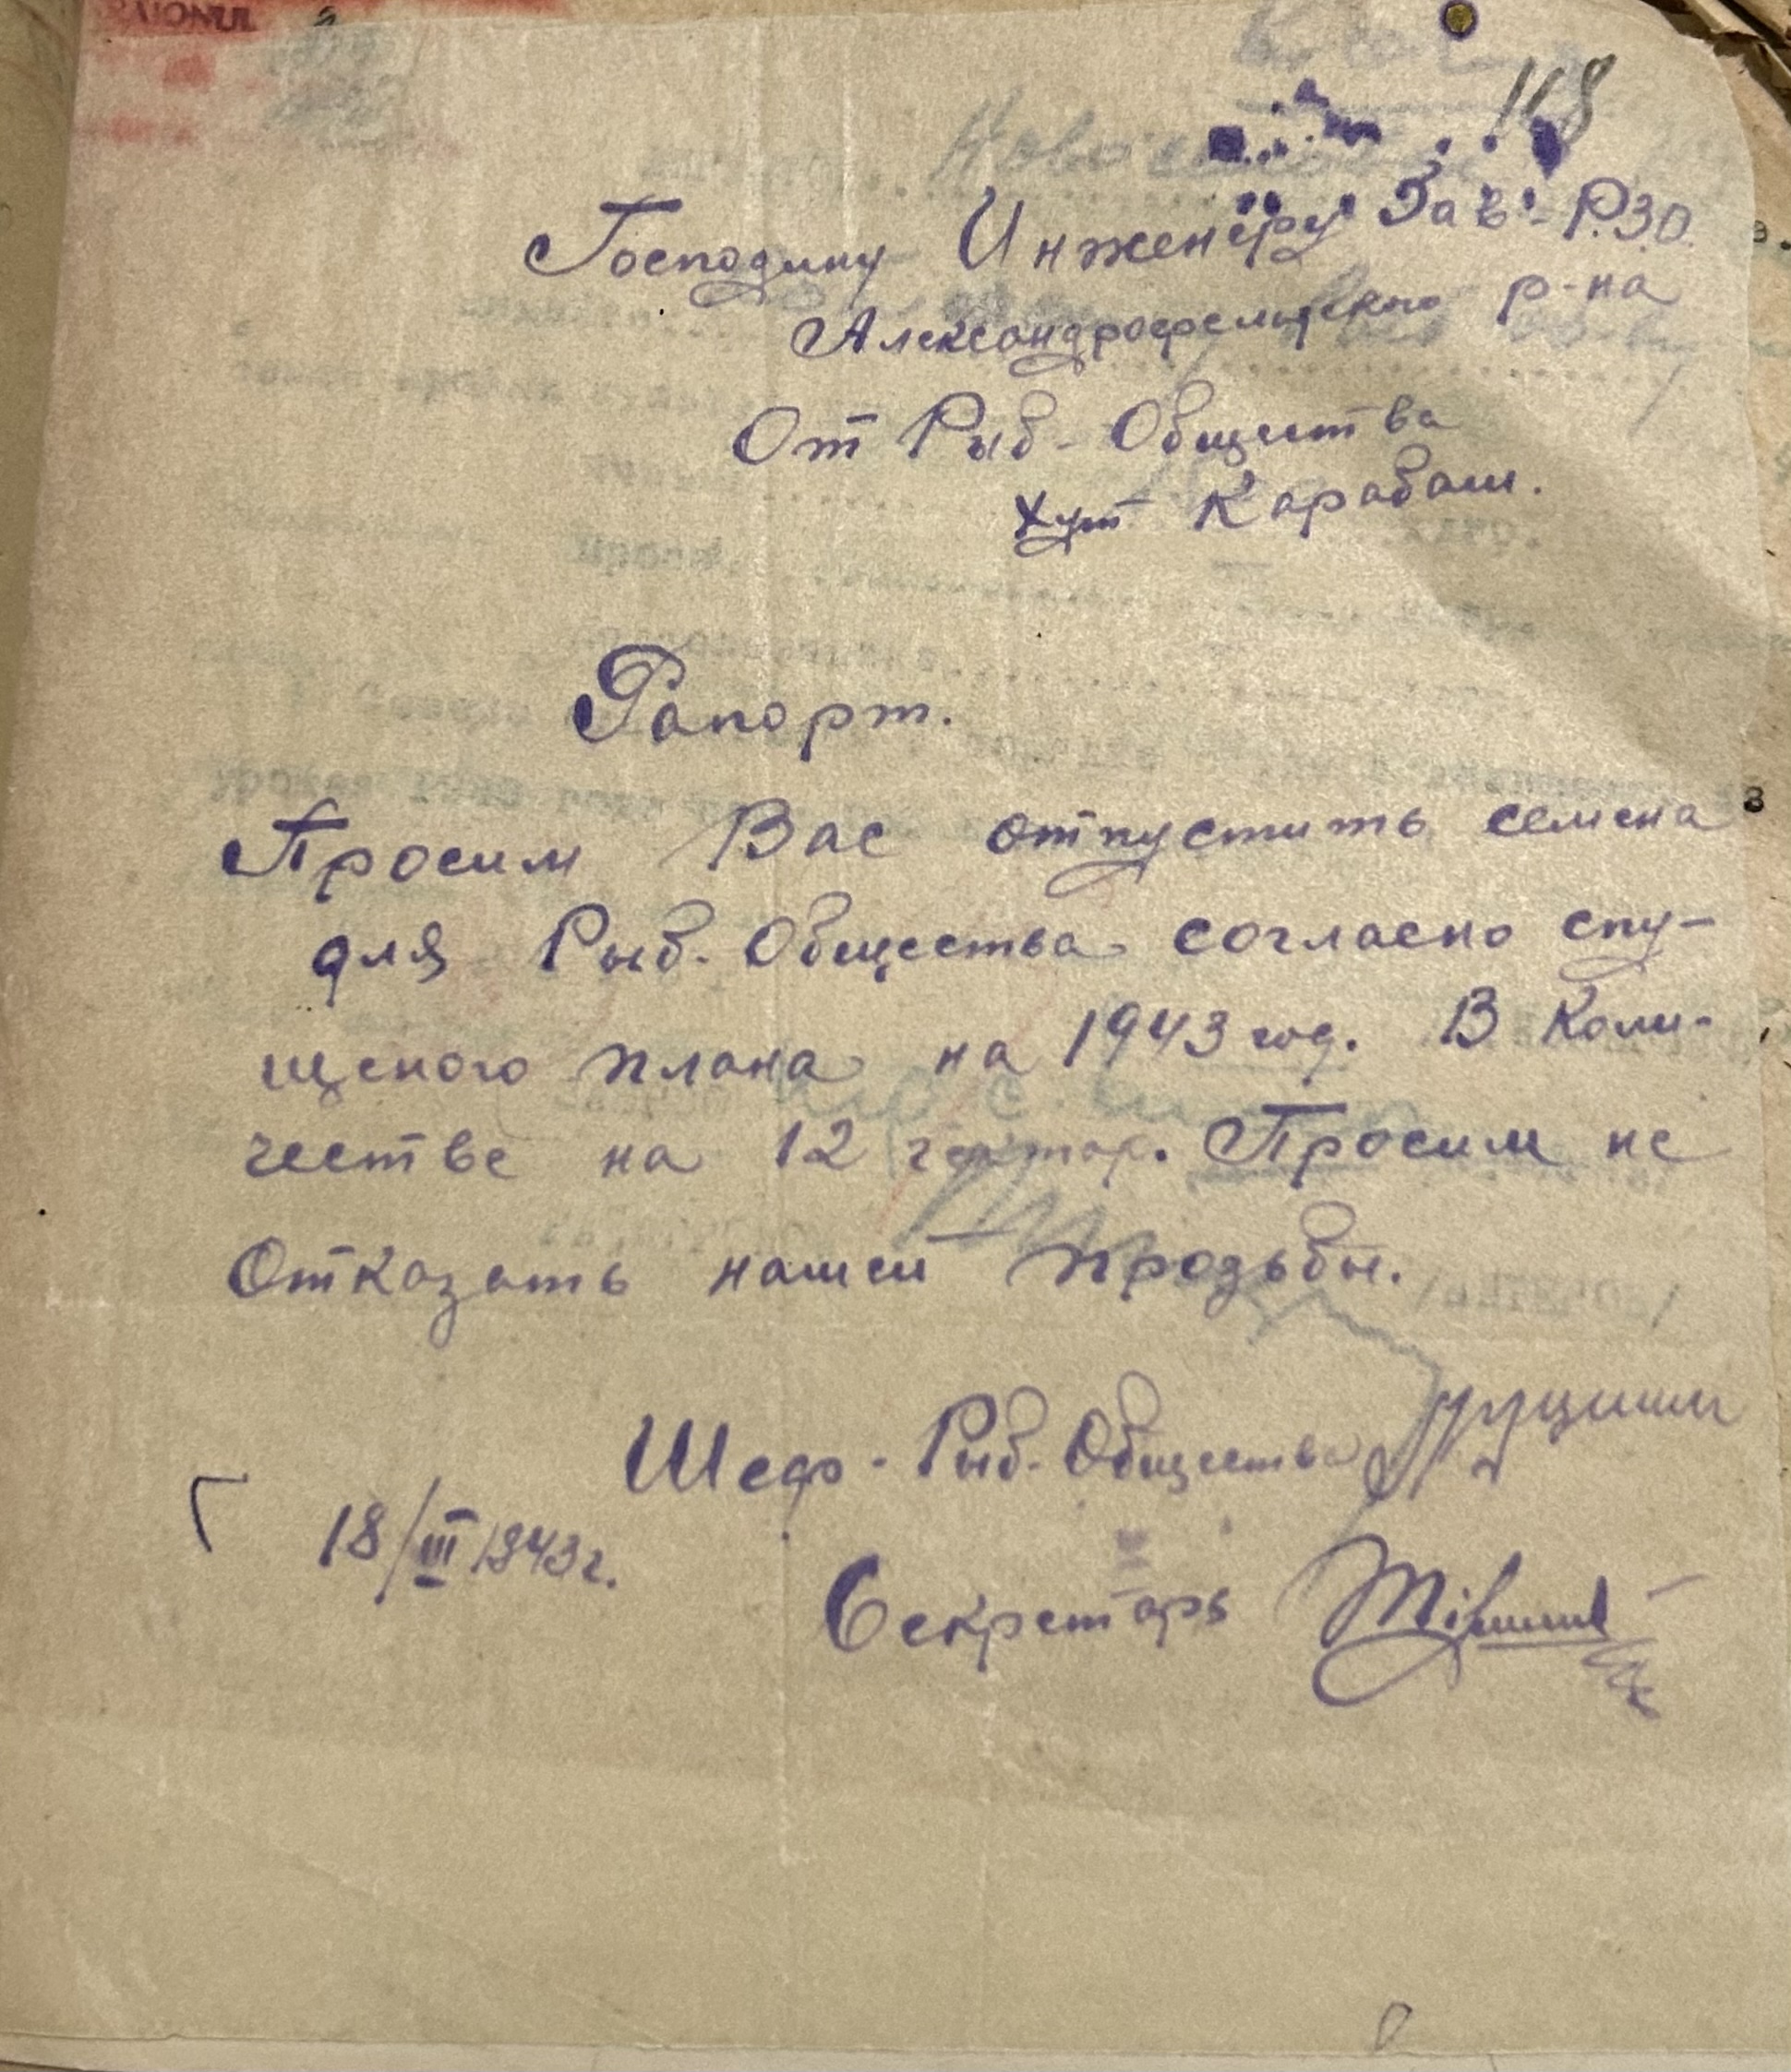 RAIONUL
118
Господину Инженеру Зав. Р.З.О.
Александрофельдского р-на
От Рыб-Общества
хут Карабаш.
Рапорт.
Просим Вас отпустить семена
для Рыб. Общества согласно спу-
щеного плана на 1943 год. В Коли-
честве на 12 гектар. Просим не
Отказать нашей прозьбы.
Шеф. Рыб. Общества
18/III 1943 г.
Секретарь